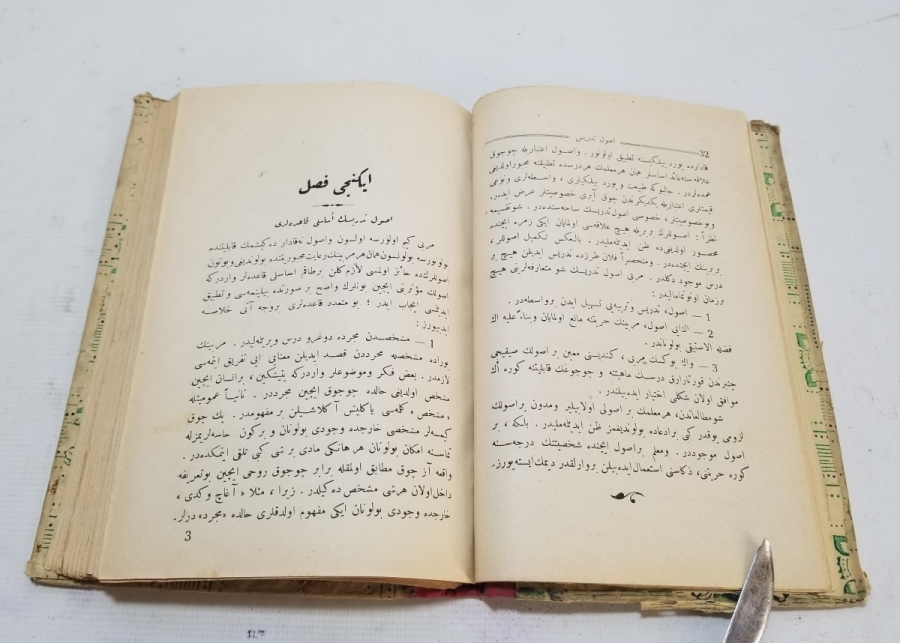 32
اصول تدریس
قدارده یورد بیلكیسنه تطبیق اولونور . واصول اعتباریله چوجوق
علاقه‌سنه‌عائد اساسلر همان هرمعلمك هردرسده تطبیقنه مجبوراولدیغی
عمده‌لردر. حالبوكه طبیعت و یورد بیلكیلری ، واسطه‌لری ونوعی
قیمتلری اعتباریله یكدیكرندن چوق آیری خصوصیتلر عرض ایدەر.
وبوخصوصیتلر ، خصوصی اصول‌تدریسك ساحه‌سنده‌در . شوتقسیمه
نظراً : اصوللرك بربریله هیچ علاقه‌سی اولمایان ایكی زمره ایچنده
محصور اولدیغی‌ده ظن ایدیلمه‌ملیدر . بالعكس تكمیل اصوللر ،
بربرینك ایچنده‌در . ومنحصراً فلان طرزده تدریس ایدیلن هیچ بر
درس موجود دكلدر . اصول تدریسك شو متعارفه‌لری هیچ
برزمان اونوتمامالیدر :
1 — اصول ، تدریس وتربیه‌یی تسهیل ایدن برواسطه‌در .
2 — اك‌ایی اصول ، مربینك حریتنه مانع اولمایان وبناءً علیه اك
فضله الاستیقی بولوناندر .
3 — واك بویوك مربی ، كندیسنی معین بر اصولك صیقیجی
چنبرندن قورتاراق درسك ماهیتنه و چوجوغك قابلیتنه كوره اك
موافق اولان شكلی اختیار ایده‌بیلندر .
شومطالعاتدن، هرمعلمك بر اصولی اولابیلیر ومدون براصولك
لزومی یوقدر كبی برادعاده بولوندیغمز ظن ایدیلمه‌ملیدر . بالكه ، بر
اصول موجوددر . ومعلم براصول ایچنده شخصیتنك درجه‌سنه
كوره حریتنی ، ذكاسنی استعمال ایده‌بیلن بروارلقدر دیمك‌ایسته‌یورز.
ایكنجی فصل
اصول تدریسك اساسلی قاعده‌لری
مربی كیم اولورسه اولسون واصول نه‌قادار ده‌كیشمك قابلیتنده
بولونورسه بولونسون‌همان‌هرمربینك‌رعایت‌مجبوریتنده بولوندیغی‌وبوتون
اصوللرك‌ده حائز اولمسی لازم‌كلن برطاقم اساسلی قاعده‌لر واردركه
اصولك مؤثریتی ایچین بونلرك واضح بر صورتده بیلینمه‌سی وتطبیق
ایدیلمسی ایجاب ایدر ؛ بو متعدد قاعده‌لری بروجه آتی خلاصه
ایدییورز :
1 — مشخصدن مجرده دوغرو درس ویریلمه‌لیدر . مربینك
بوراده مشخصله مجرددن قصد ایدیلن معنایی ایی تفریق ایتمه‌سی
لازمدر. بعض فكر وموضوعلر واردركه یتیشكین ، برانسان ایچین
مشخص اولدیغی حالده چوجوق ایچین مجرددر . ثانیاً عمومیتله
«مشخص» كلمه‌سی یاكلیش آكلاشیلان برمفهومدر . پك چوق
كیمسه‌لر مشخصی خارجده وجودی بولونان و بركون حاسه‌لریمزله
تماسنه امكان بولونان هر هانكی مادی بر شی كبی تلقی ایتمكده‌در .
واقعه آز چوق مطابق اولمقله برابر چوجوق روحی ایچین بوتعریفه
داخل‌اولان هرشی مشخص ده كیلدر . زیرا ، مثلا « آغاچ وكدی »
خارجده وجودی بولونان ایكی مفهوم اولدقلری حالده «مجرد» درلر.
3